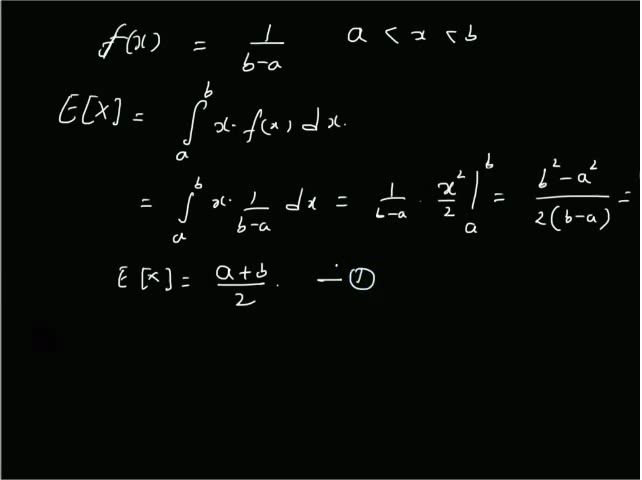 f(x) = 1/(b-a) a < x < b
E[X] = ∫_a^b x · f(x) dx.
= ∫_a^b x · 1/(b-a) dx = 1/(b-a) · x²/2 |_a^b = (b² - a²)/(2(b-a)) =
E[x] = (a+b)/2 . — ①